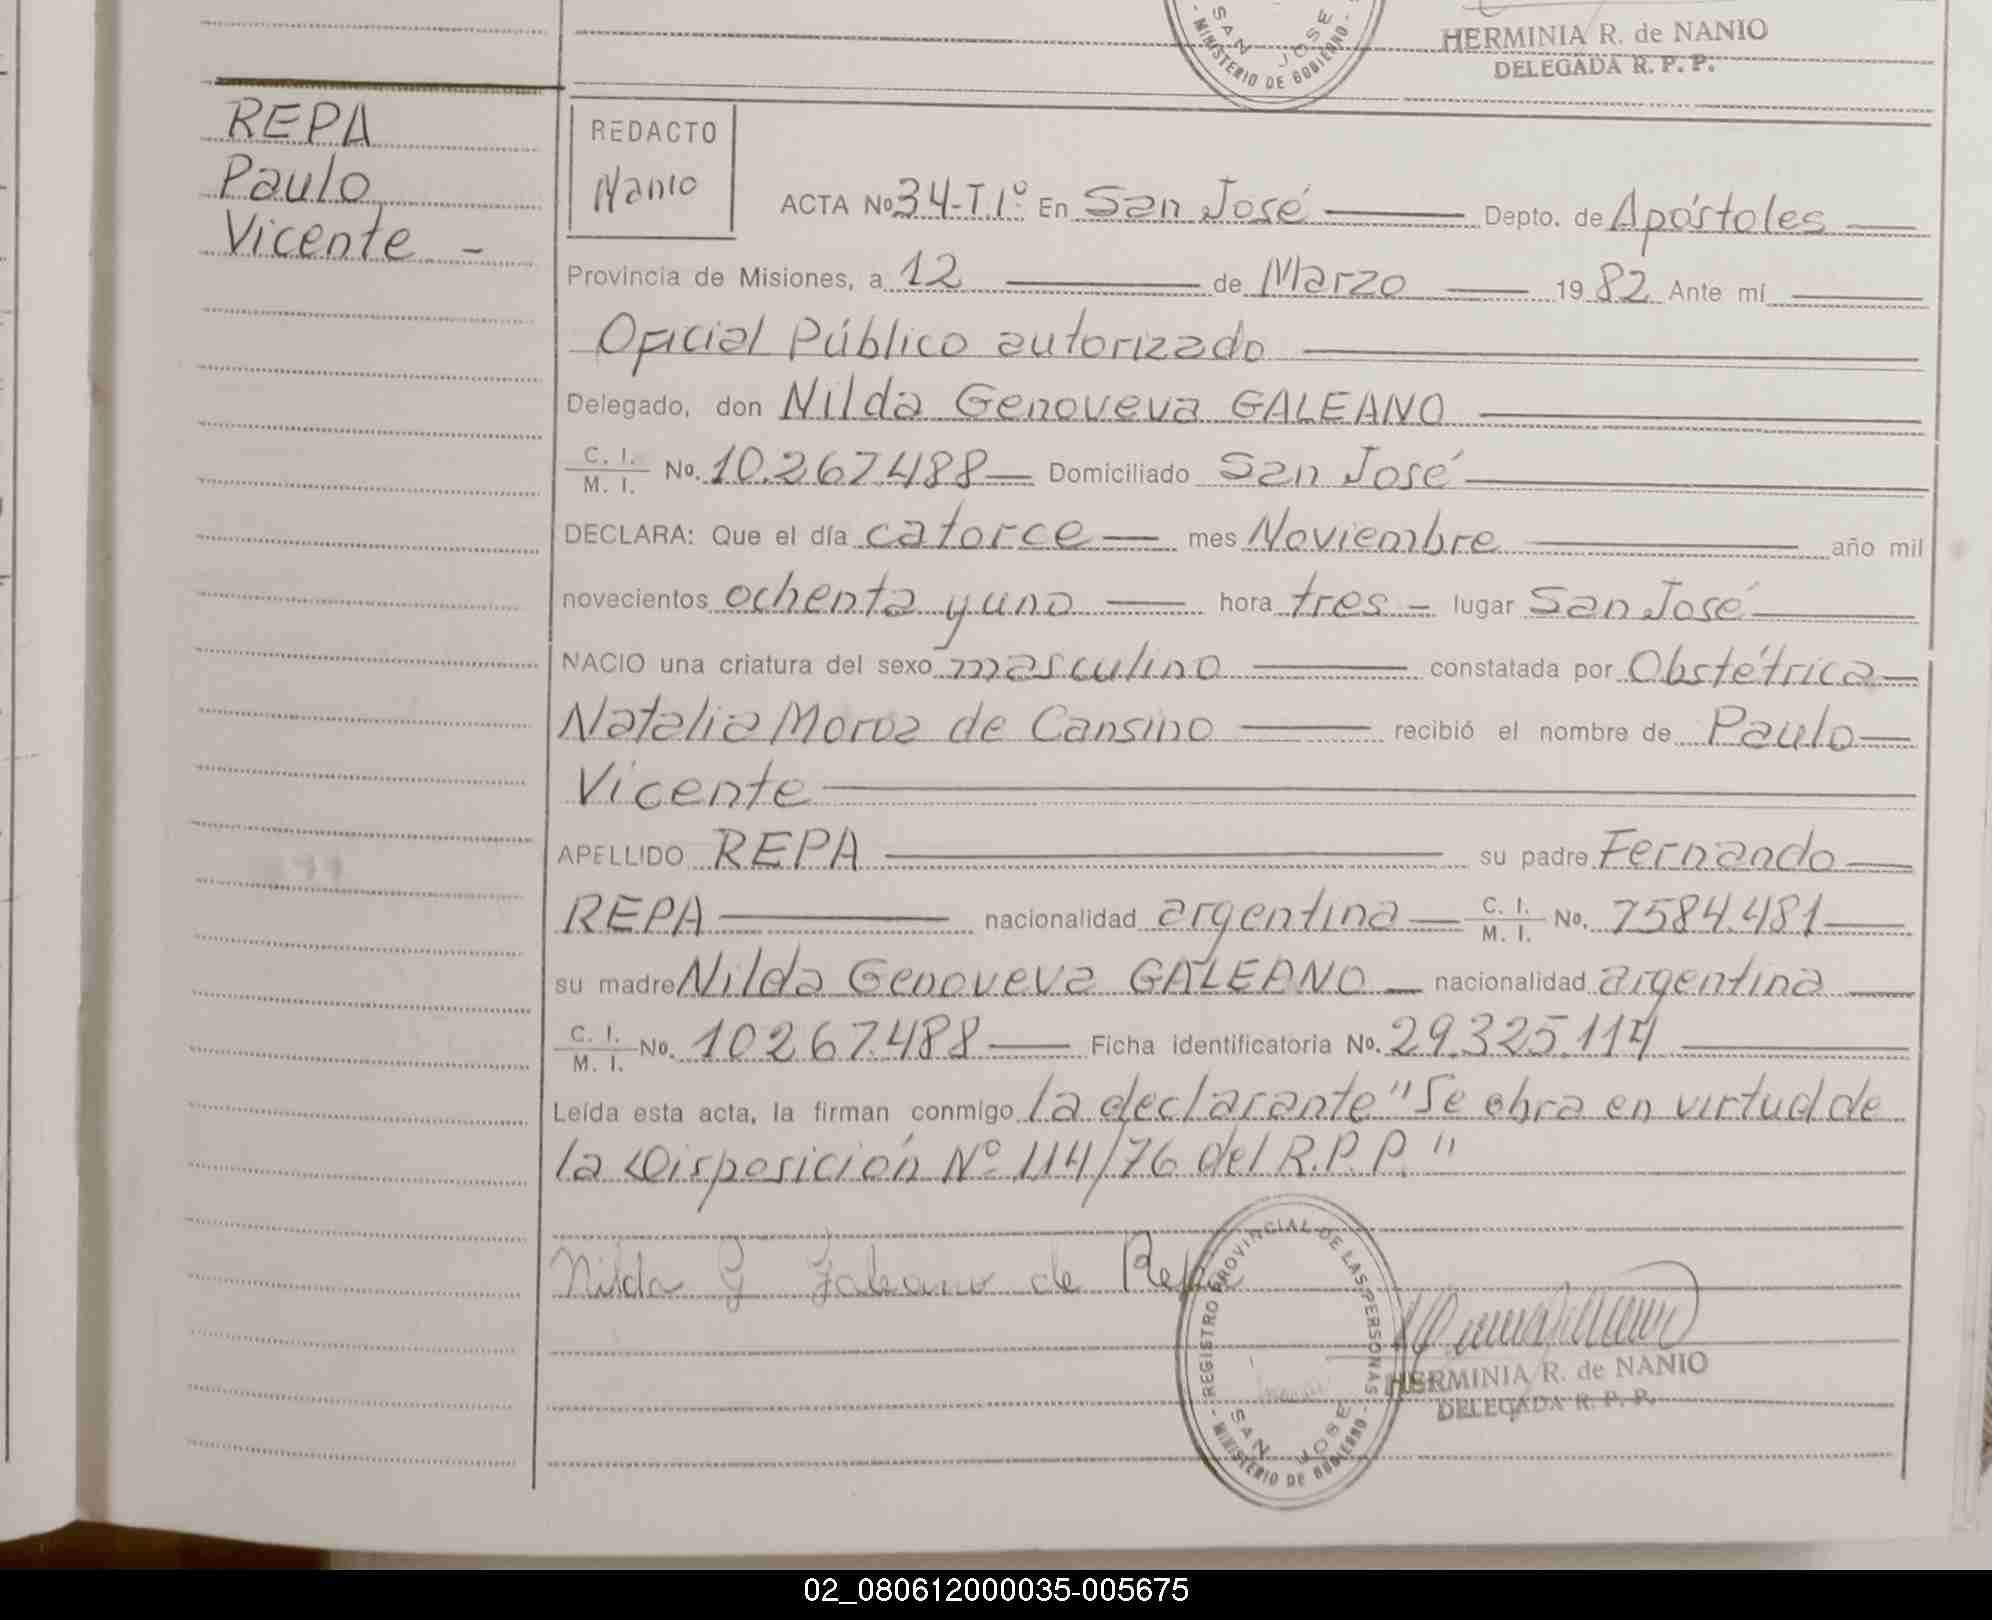 SAN JOSE
- MINISTERIO DE GOBIERNO -
HERMINIA R. de NANIO
DELEGADA R. P. P.
REPA
Paulo
Vicente -
REDACTO
Nanio
ACTA No 34-T.1º En San José Depto. de Apóstoles
Provincia de Misiones, a 12 de Marzo 19 82 Ante mí
Oficial Público autorizado
Delegado, don Nilda Genoveva GALEANO
C. I. / M. I. No. 10.267.488 Domiciliado San José
DECLARA: Que el día catorce mes Noviembre año mil
novecientos ochenta y uno hora tres lugar San José
NACIO una criatura del sexo masculino constatada por Obstétrica
Natalia Moroz de Cansino recibió el nombre de Paulo
Vicente
APELLIDO REPA su padre Fernando
REPA nacionalidad argentina C. I. / M. I. No. 7584.481
su madre Nilda Genoveva GALEANO nacionalidad argentina
C. I. / M. I. No. 10267.488 Ficha identificatoria No. 29.325.114
Leída esta acta, la firman conmigo la declarante "Se obra en virtud de
la Disposición Nº 114/76 del R.P.P."
Nilda G Galeano de Repa
- REGISTRO PROVINCIAL DE LAS PERSONAS -
SAN JOSE
MINISTERIO DE GOBIERNO
HERMINIA R. de NANIO
DELEGADA R. P. P.
02_080612000035-005675